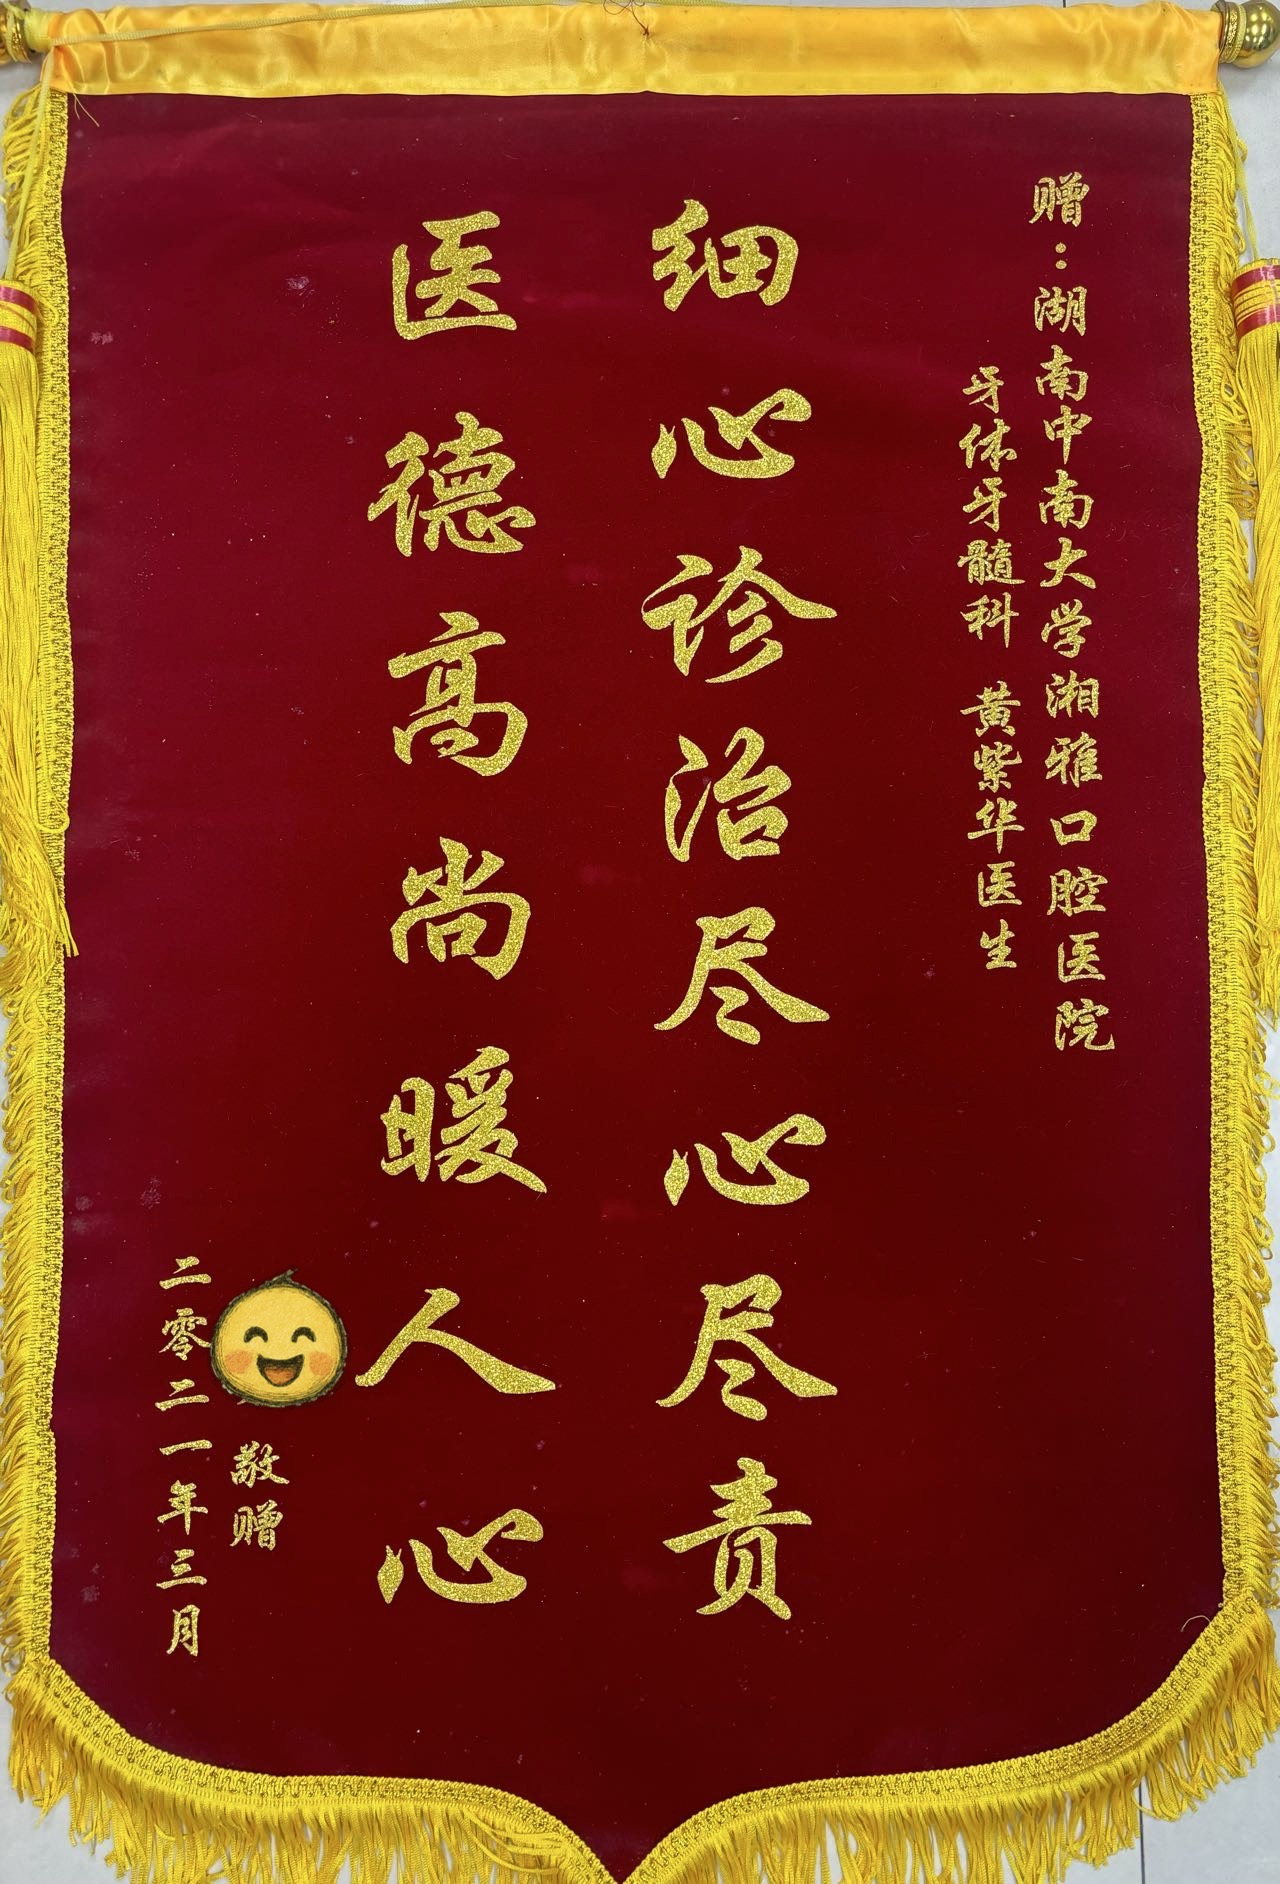 赠：湖南中南大学湘雅口腔医院
牙体牙髓科 黄紫华医生
细心诊治尽心尽责
医德高尚暖人心
敬赠
二零二一年三月